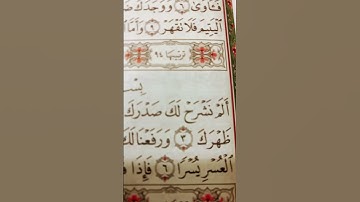 فَـَٔاوَىٰ ٦ وَوَجَدَكَ
ٱلْيَتِيمَ فَلَا تَقْهَرْ ٩ وَأَمَّا
ترتيبها ٩٤
بِسْ
أَلَمْ نَشْرَحْ لَكَ صَدْرَكَ
ظَهْرَكَ ٣ وَرَفَعْنَا لَكَ
ٱلْعُسْرِ يُسْرًا ٦ فَإِذَا